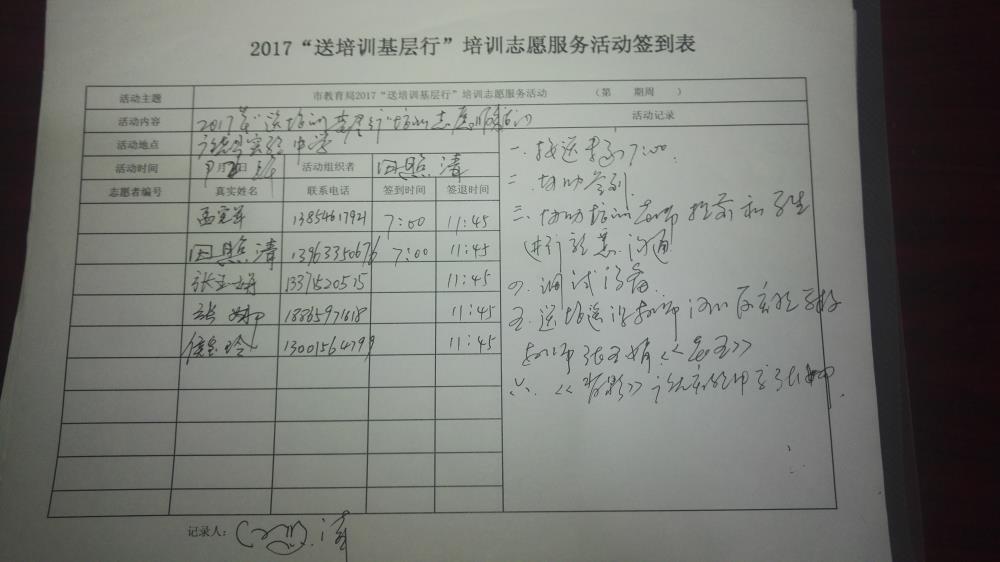 2017“送培训基层行”培训志愿服务活动签到表
活动主题 市教育局2017“送培训基层行”培训志愿服务活动 （第 期周 ）
活动内容 2017年“送培训基层行”培训志愿服务活动 活动记录
活动地点 实验中学
活动时间 月 日 活动组织者 田照清
志愿者编号 真实姓名 联系电话 签到时间 签退时间
孟宪军 13854617921 7:00 11:45
田照清 13963350676 7:00 11:45
张玉娟 1337520515 11:45
张 18865971618 11:45
玲 13001564799 11:45
一、接送 7:00.
二、协助签到
三、协助培训教师提前和学生
进行 沟通
四、调试设备
五、送培送课教师
教师张玉娟《 》
六、《背影》
记录人： 清